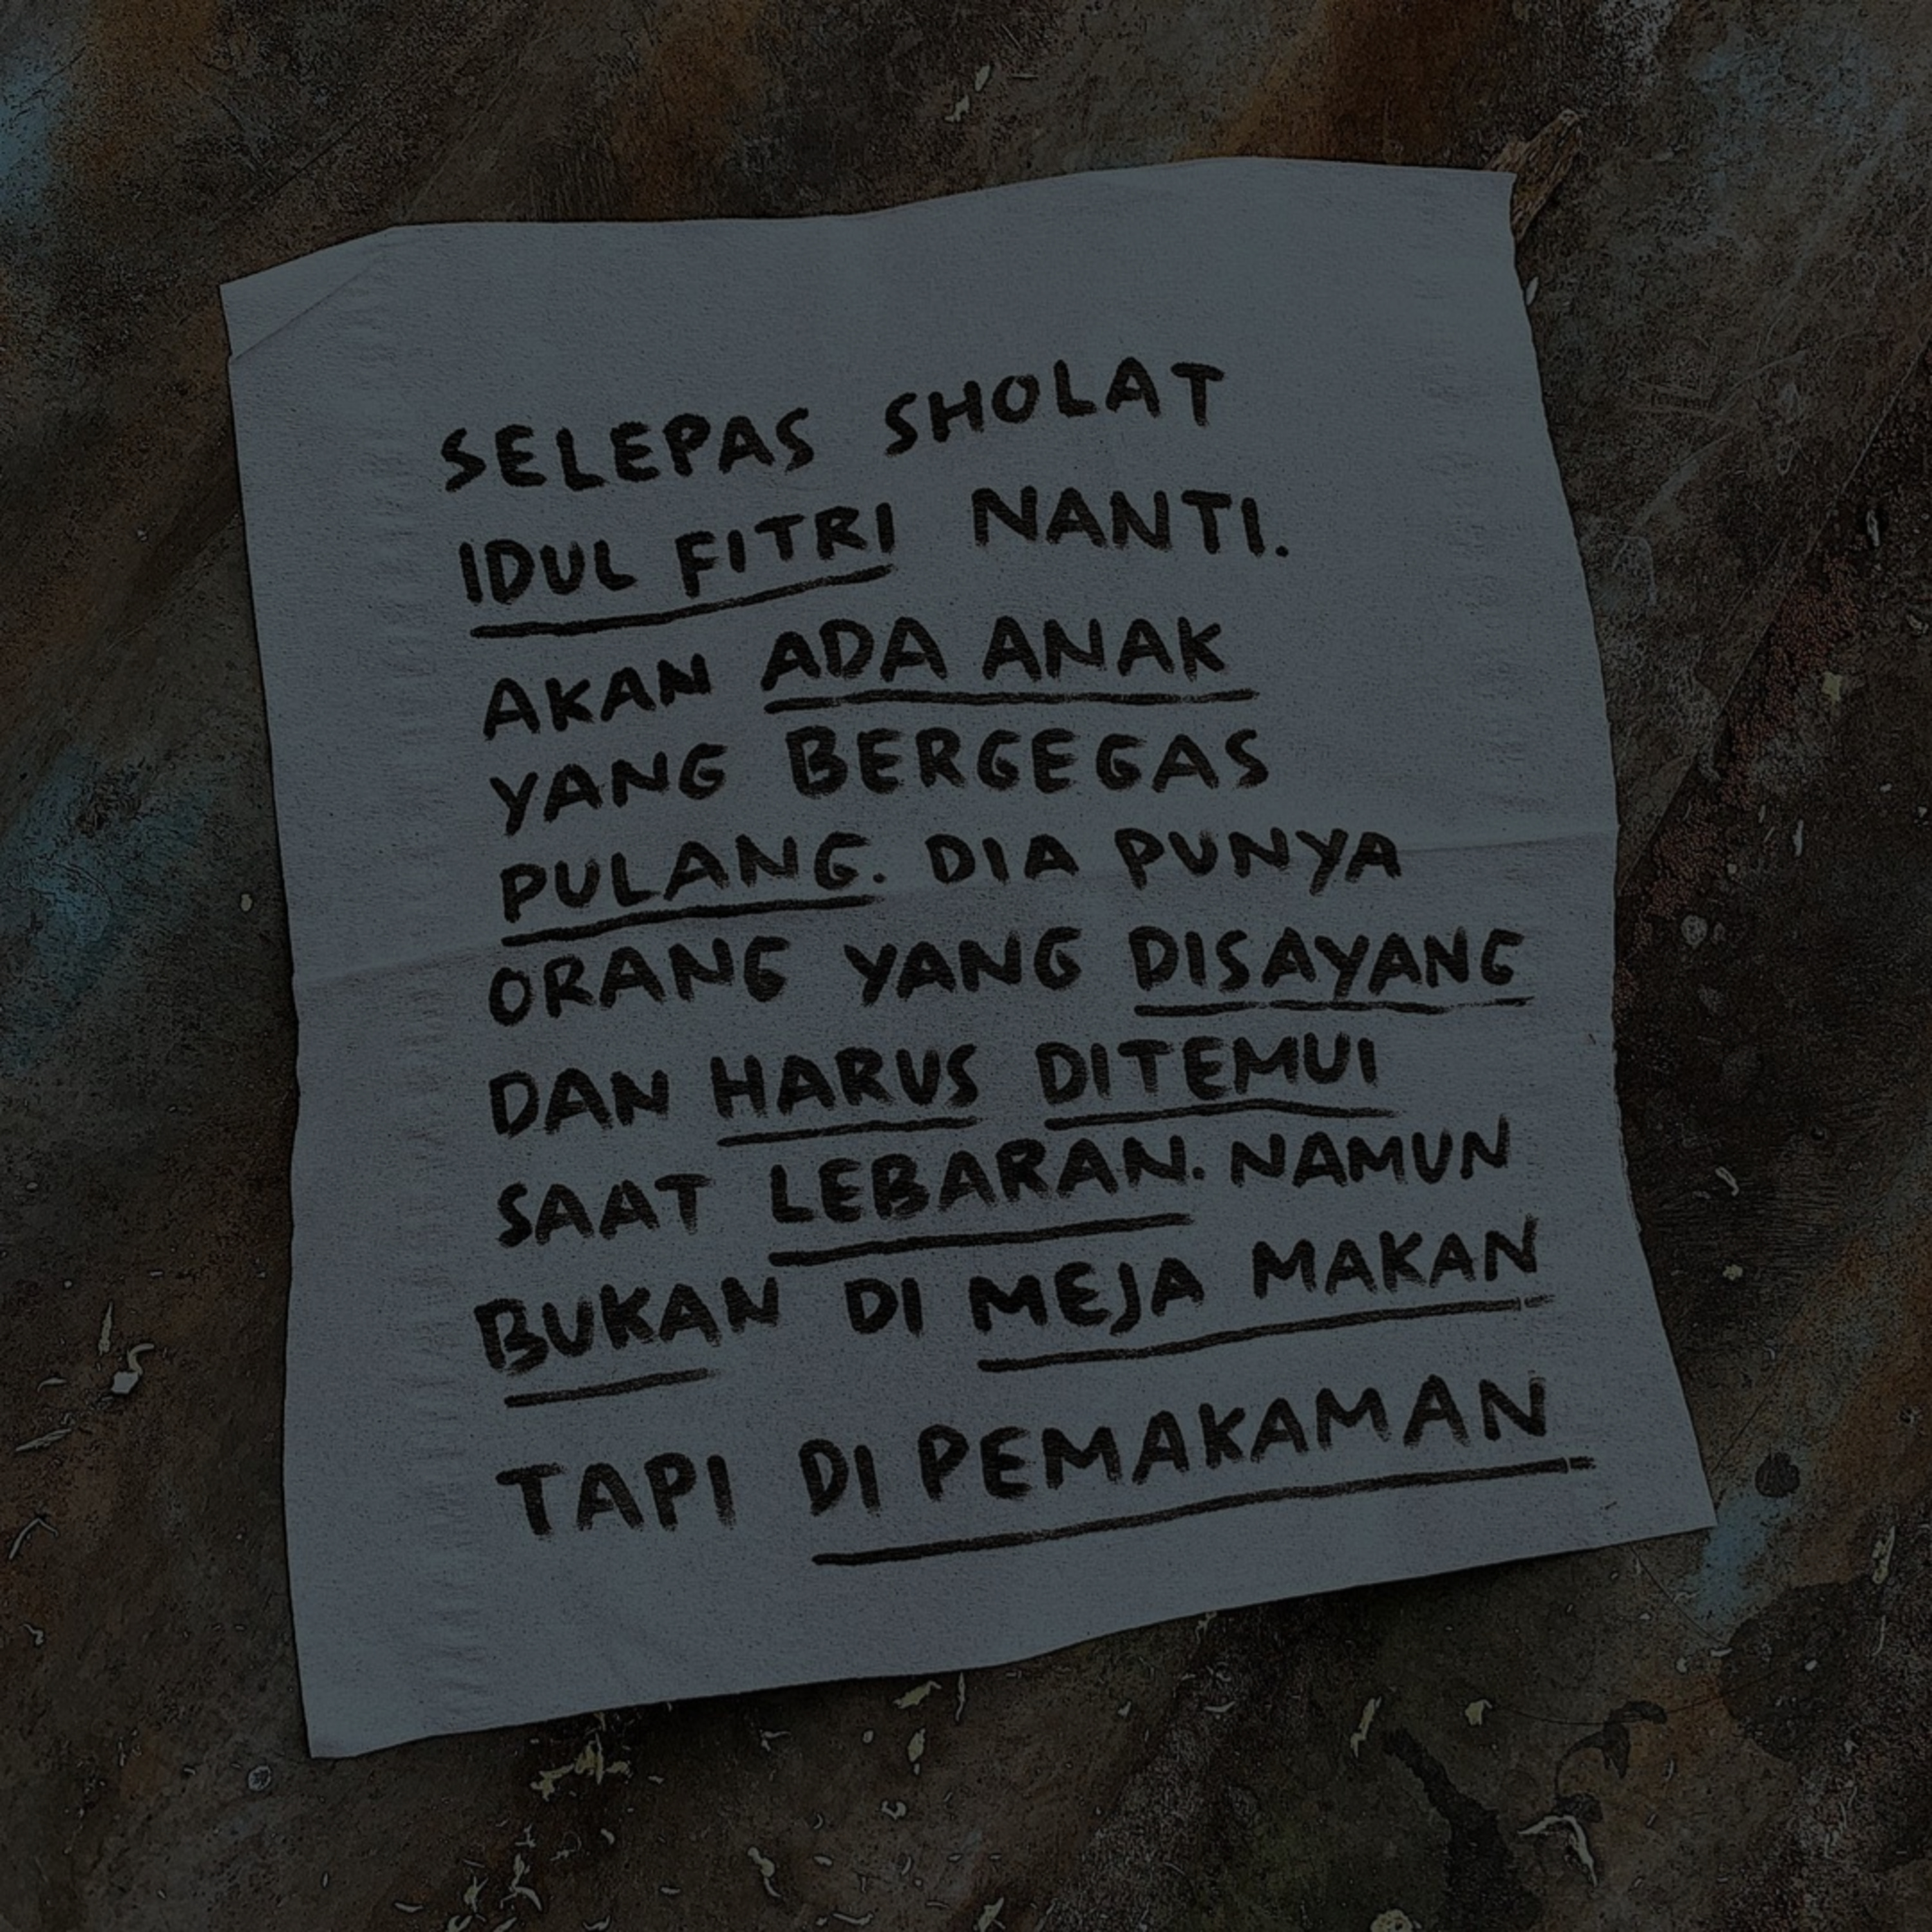 SELEPAS SHOLAT
IDUL FITRI NANTI.
AKAN ADA ANAK
YANG BERGEGAS
PULANG. DIA PUNYA
ORANG YANG DISAYANG
DAN HARUS DITEMUI
SAAT LEBARAN. NAMUN
BUKAN DI MEJA MAKAN
TAPI DI PEMAKAMAN